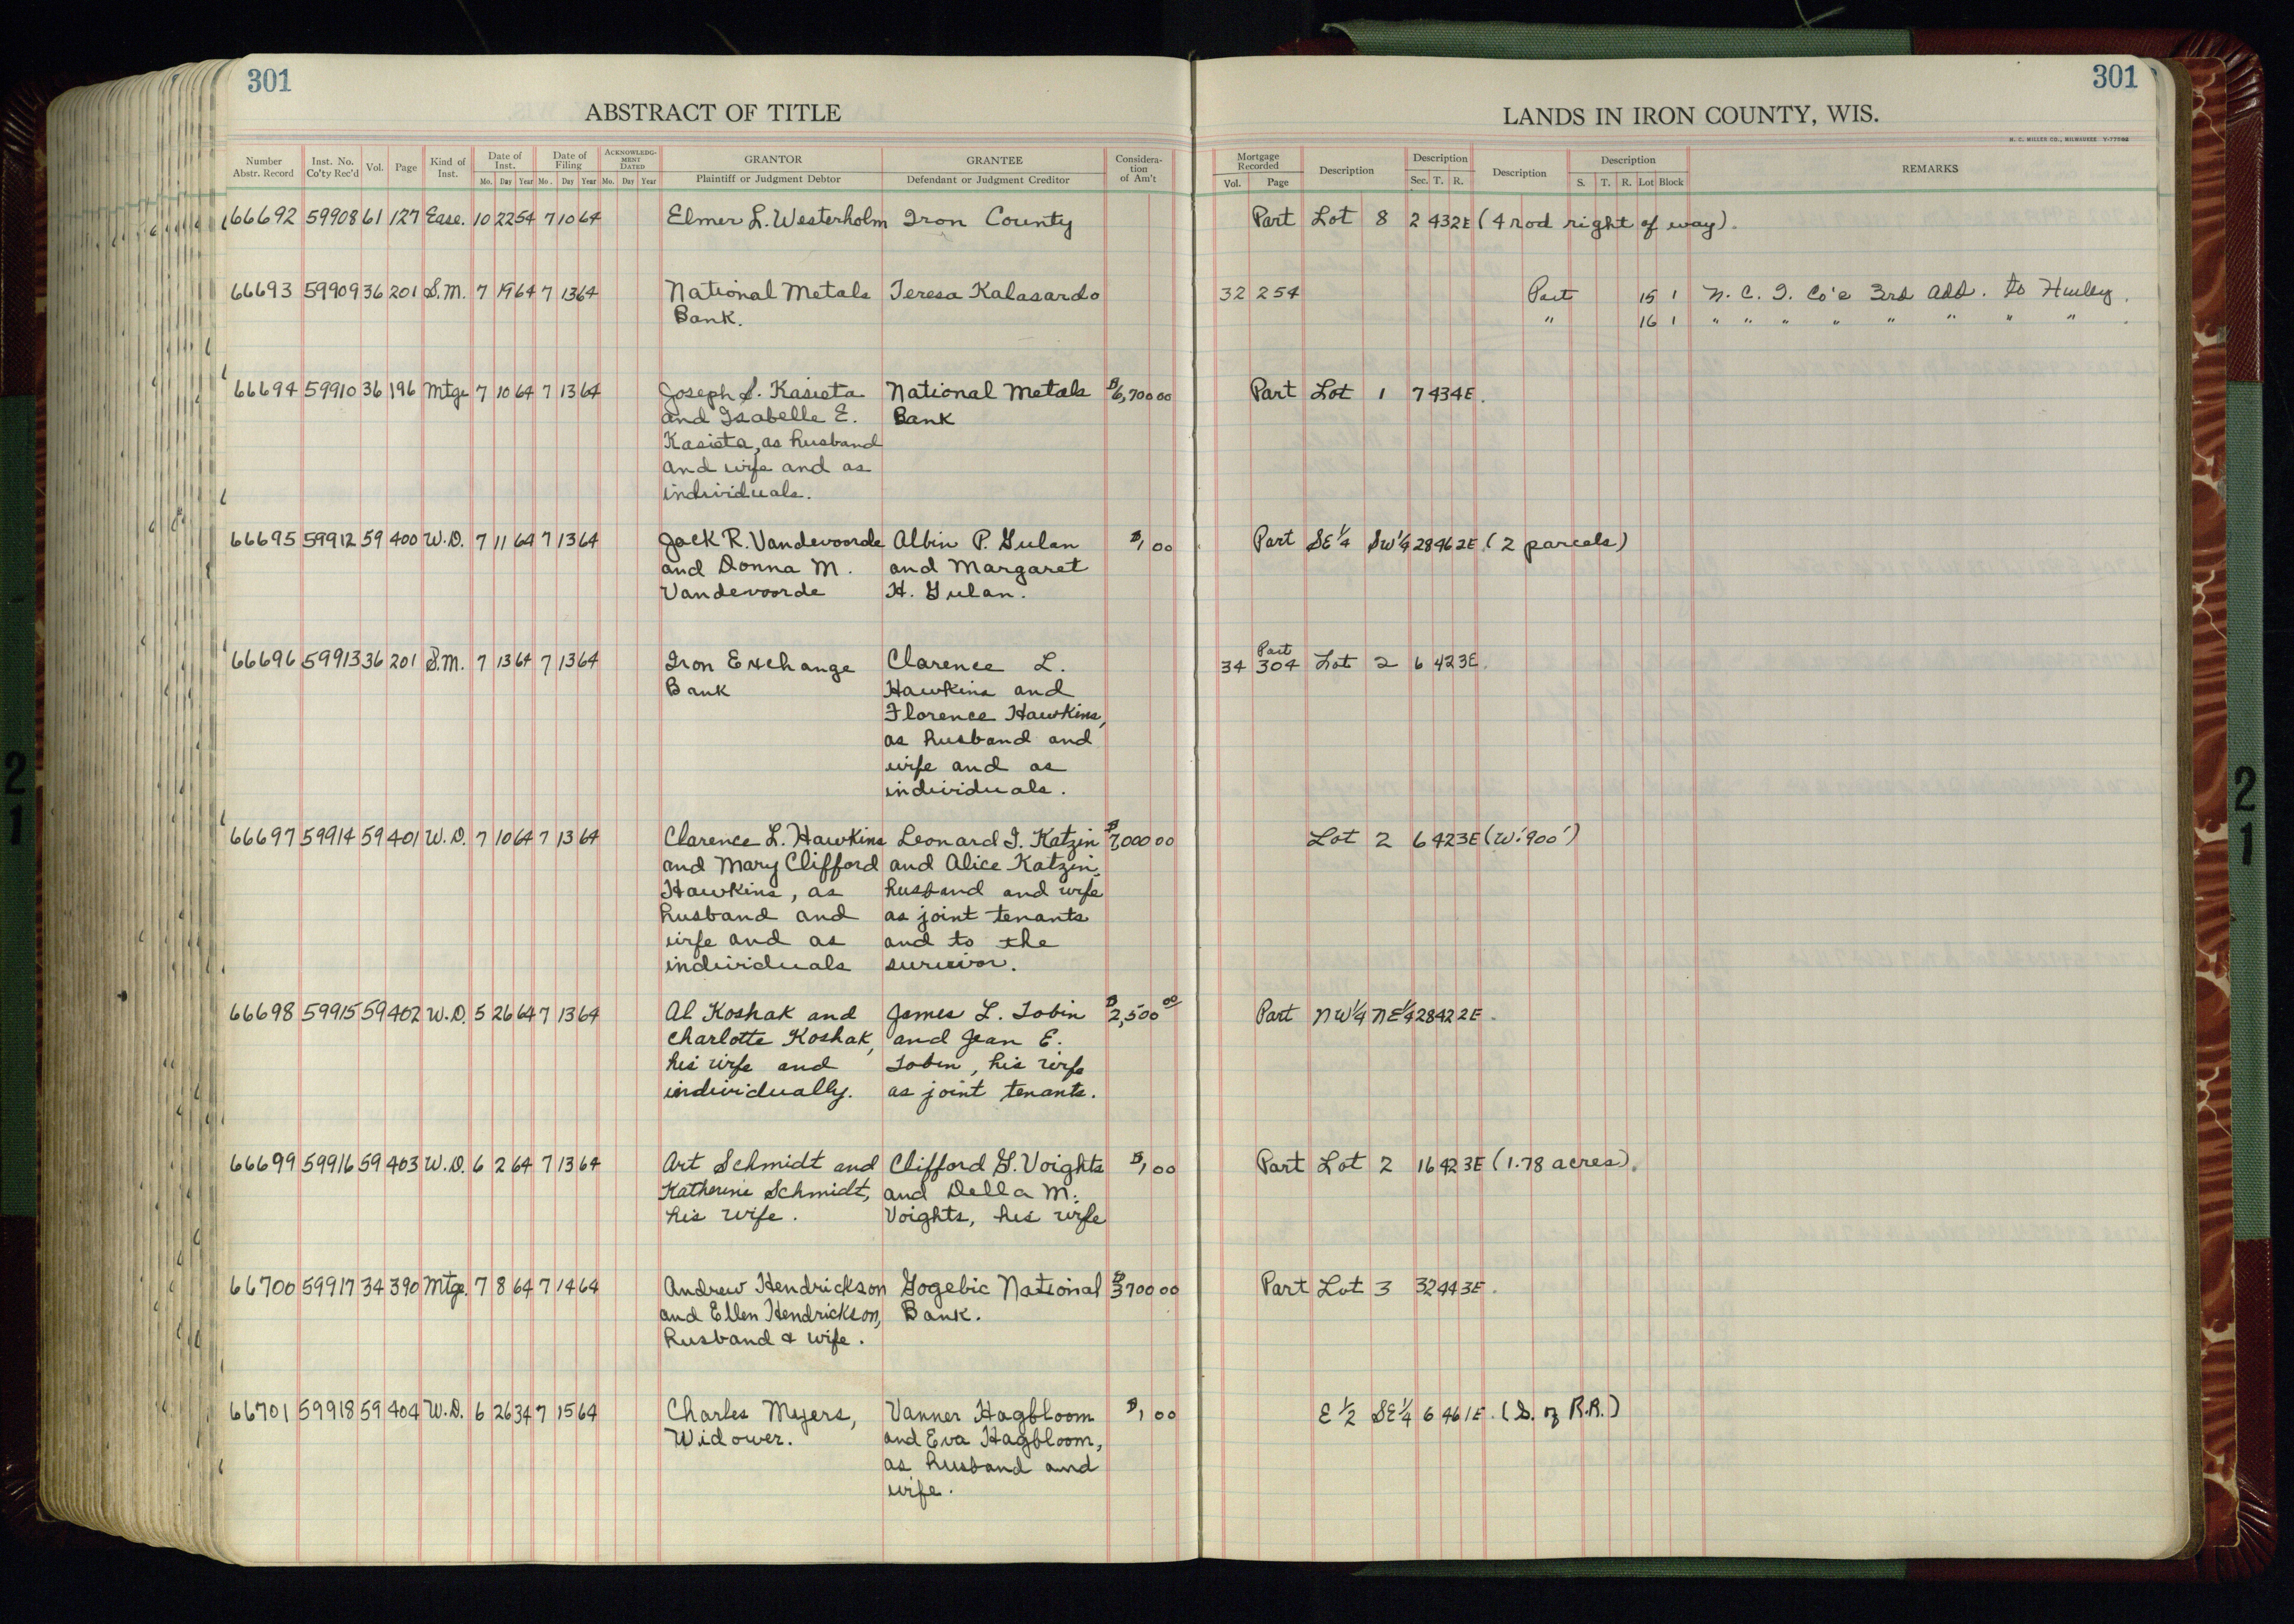 301
ABSTRACT OF TITLE
Number Abstr. Record Inst. No. Co'ty Rec'd Vol. Page Kind of Inst. Date of Inst. Date of Filing ACKNOWLEDG-MENT DATED GRANTOR GRANTEE Considera-tion of Am't
Mo. Day Year Mo. Day Year Mo. Day Year Plaintiff or Judgment Debtor Defendant or Judgment Creditor
66692 59908 61 127 Ease. 10 22 54 7 10 64 Elmer L. Westerholm Iron County
66693 59909 36 201 S.M. 7 19 64 7 13 64 National Metals Teresa Kalasardo
Bank.
66694 59910 36 196 Mtge 7 10 64 7 13 64 Joseph S. Kasieta National Metals $6,700 00
and Isabelle E. Bank
Kasieta, as husband
and wife and as
individuals.
66695 59912 59 400 W.D. 7 11 64 7 13 64 Jack R. Vandevoorde Albin P. Gulan $1 00
and Donna M. and Margaret
Vandevoorde H. Gulan.
66696 59913 36 201 S.M. 7 13 64 7 13 64 Iron Exchange Clarence L.
Bank Hawkins and
Florence Hawkins,
as husband and
wife and as
individuals.
66697 59914 59 401 W.D. 7 10 64 7 13 64 Clarence L. Hawkins Leonard I. Katzin $7,000 00
and Mary Clifford and Alice Katzin,
Hawkins, as husband and wife
husband and as joint tenants
wife and as and to the
individuals survivor.
66698 59915 59 402 W.D. 5 26 64 7 13 64 Al Koshak and James L. Tobin $2,500 00
Charlotte Koshak, and Jean E.
his wife and Tobin, his wife
individually. as joint tenants.
66699 59916 59 403 W.D. 6 2 64 7 13 64 Art Schmidt and Clifford G. Voights $1 00
Katherine Schmidt, and Della M.
his wife. Voights, his wife
66700 59917 34 390 Mtge. 7 8 64 7 14 64 Andrew Hendrickson Gogebic National $3700 00
and Ellen Hendrickson, Bank.
husband & wife.
66701 59918 59 404 W.D. 6 26 34 7 15 64 Charles Myers, Vanner Hagbloom $1 00
Widower. and Eva Hagbloom,
as husband and
wife.
301
LANDS IN IRON COUNTY, WIS.
H. C. MILLER CO., MILWAUKEE
Mortgage Recorded Description Description Description Description REMARKS
Vol. Page Sec. T. R. S. T. R. Lot Block
Part Lot 8 2 43 2E (4 rod right of way).
32 254 Part 15 1 N. C. I. Co's 3rd Add. to Hurley.
" 16 1 " " " " " " " " .
Part Lot 1 7 43 4E.
Part SE 1/4 SW 1/4 28 46 2E. (2 parcels)
Part
34 304 Lot 2 6 42 3E.
Lot 2 6 42 3E (W. 900')
Part NW 1/4 NE 1/4 28 42 2E.
Part Lot 2 16 42 3E (1.78 acres).
Part Lot 3 32 44 3E.
E 1/2 SE 1/4 6 46 1E. (S. of R.R.)
21
21